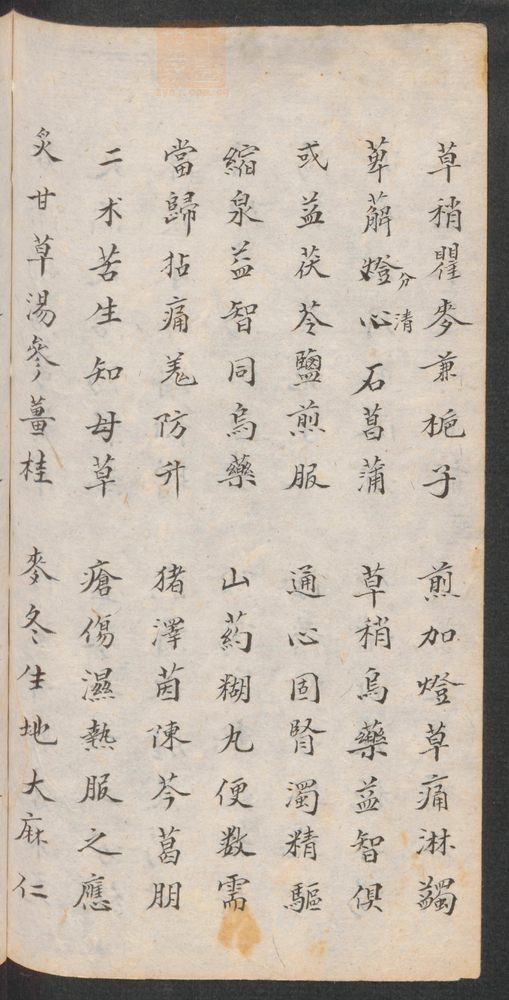 草稍瞿麥兼梔子 煎加燈草痛淋蠲
萆薢燈心石菖蒲 草稍烏藥益智俱
分清
或益茯苓鹽煎服 通心固腎濁精驅
縮泉益智同烏藥 山药糊丸便数需
當歸拈痛羗防升 猪澤茵陳芩葛朋
二术苦生知母草 瘡傷濕熱服之應
炙甘草湯參薑桂 麥冬生地大麻仁